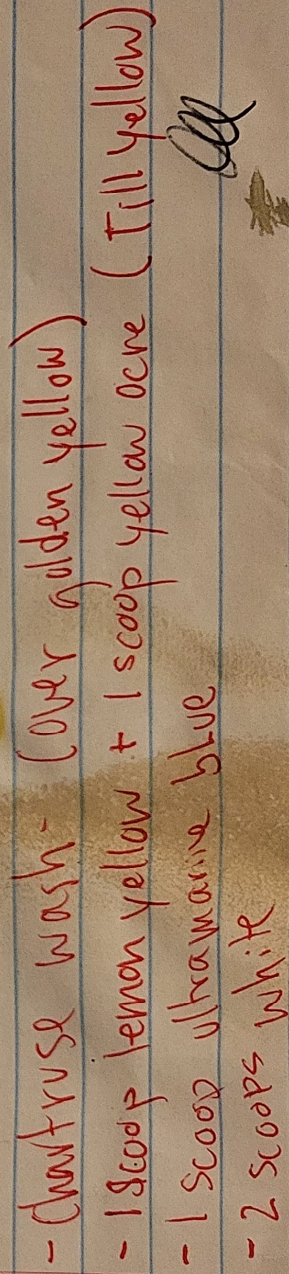 - Chartruse wash - (over golden yellow)
- 1 Scoop lemon yellow + 1 scoop yellow ocre (Till yellow)
- 1 scoop ultramarine blue
- 2 scoops white